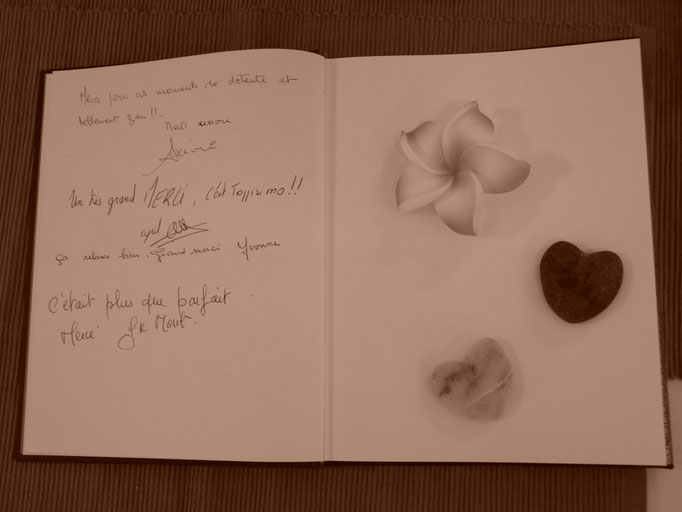 Merci pour ces moments de détente et
tellement zen !!..
Merci encore
Un très grand MERCI, c'était Toppissimo !!
ça relaxe bien. Grand merci Yvonne
C'était plus que parfait.
Merci